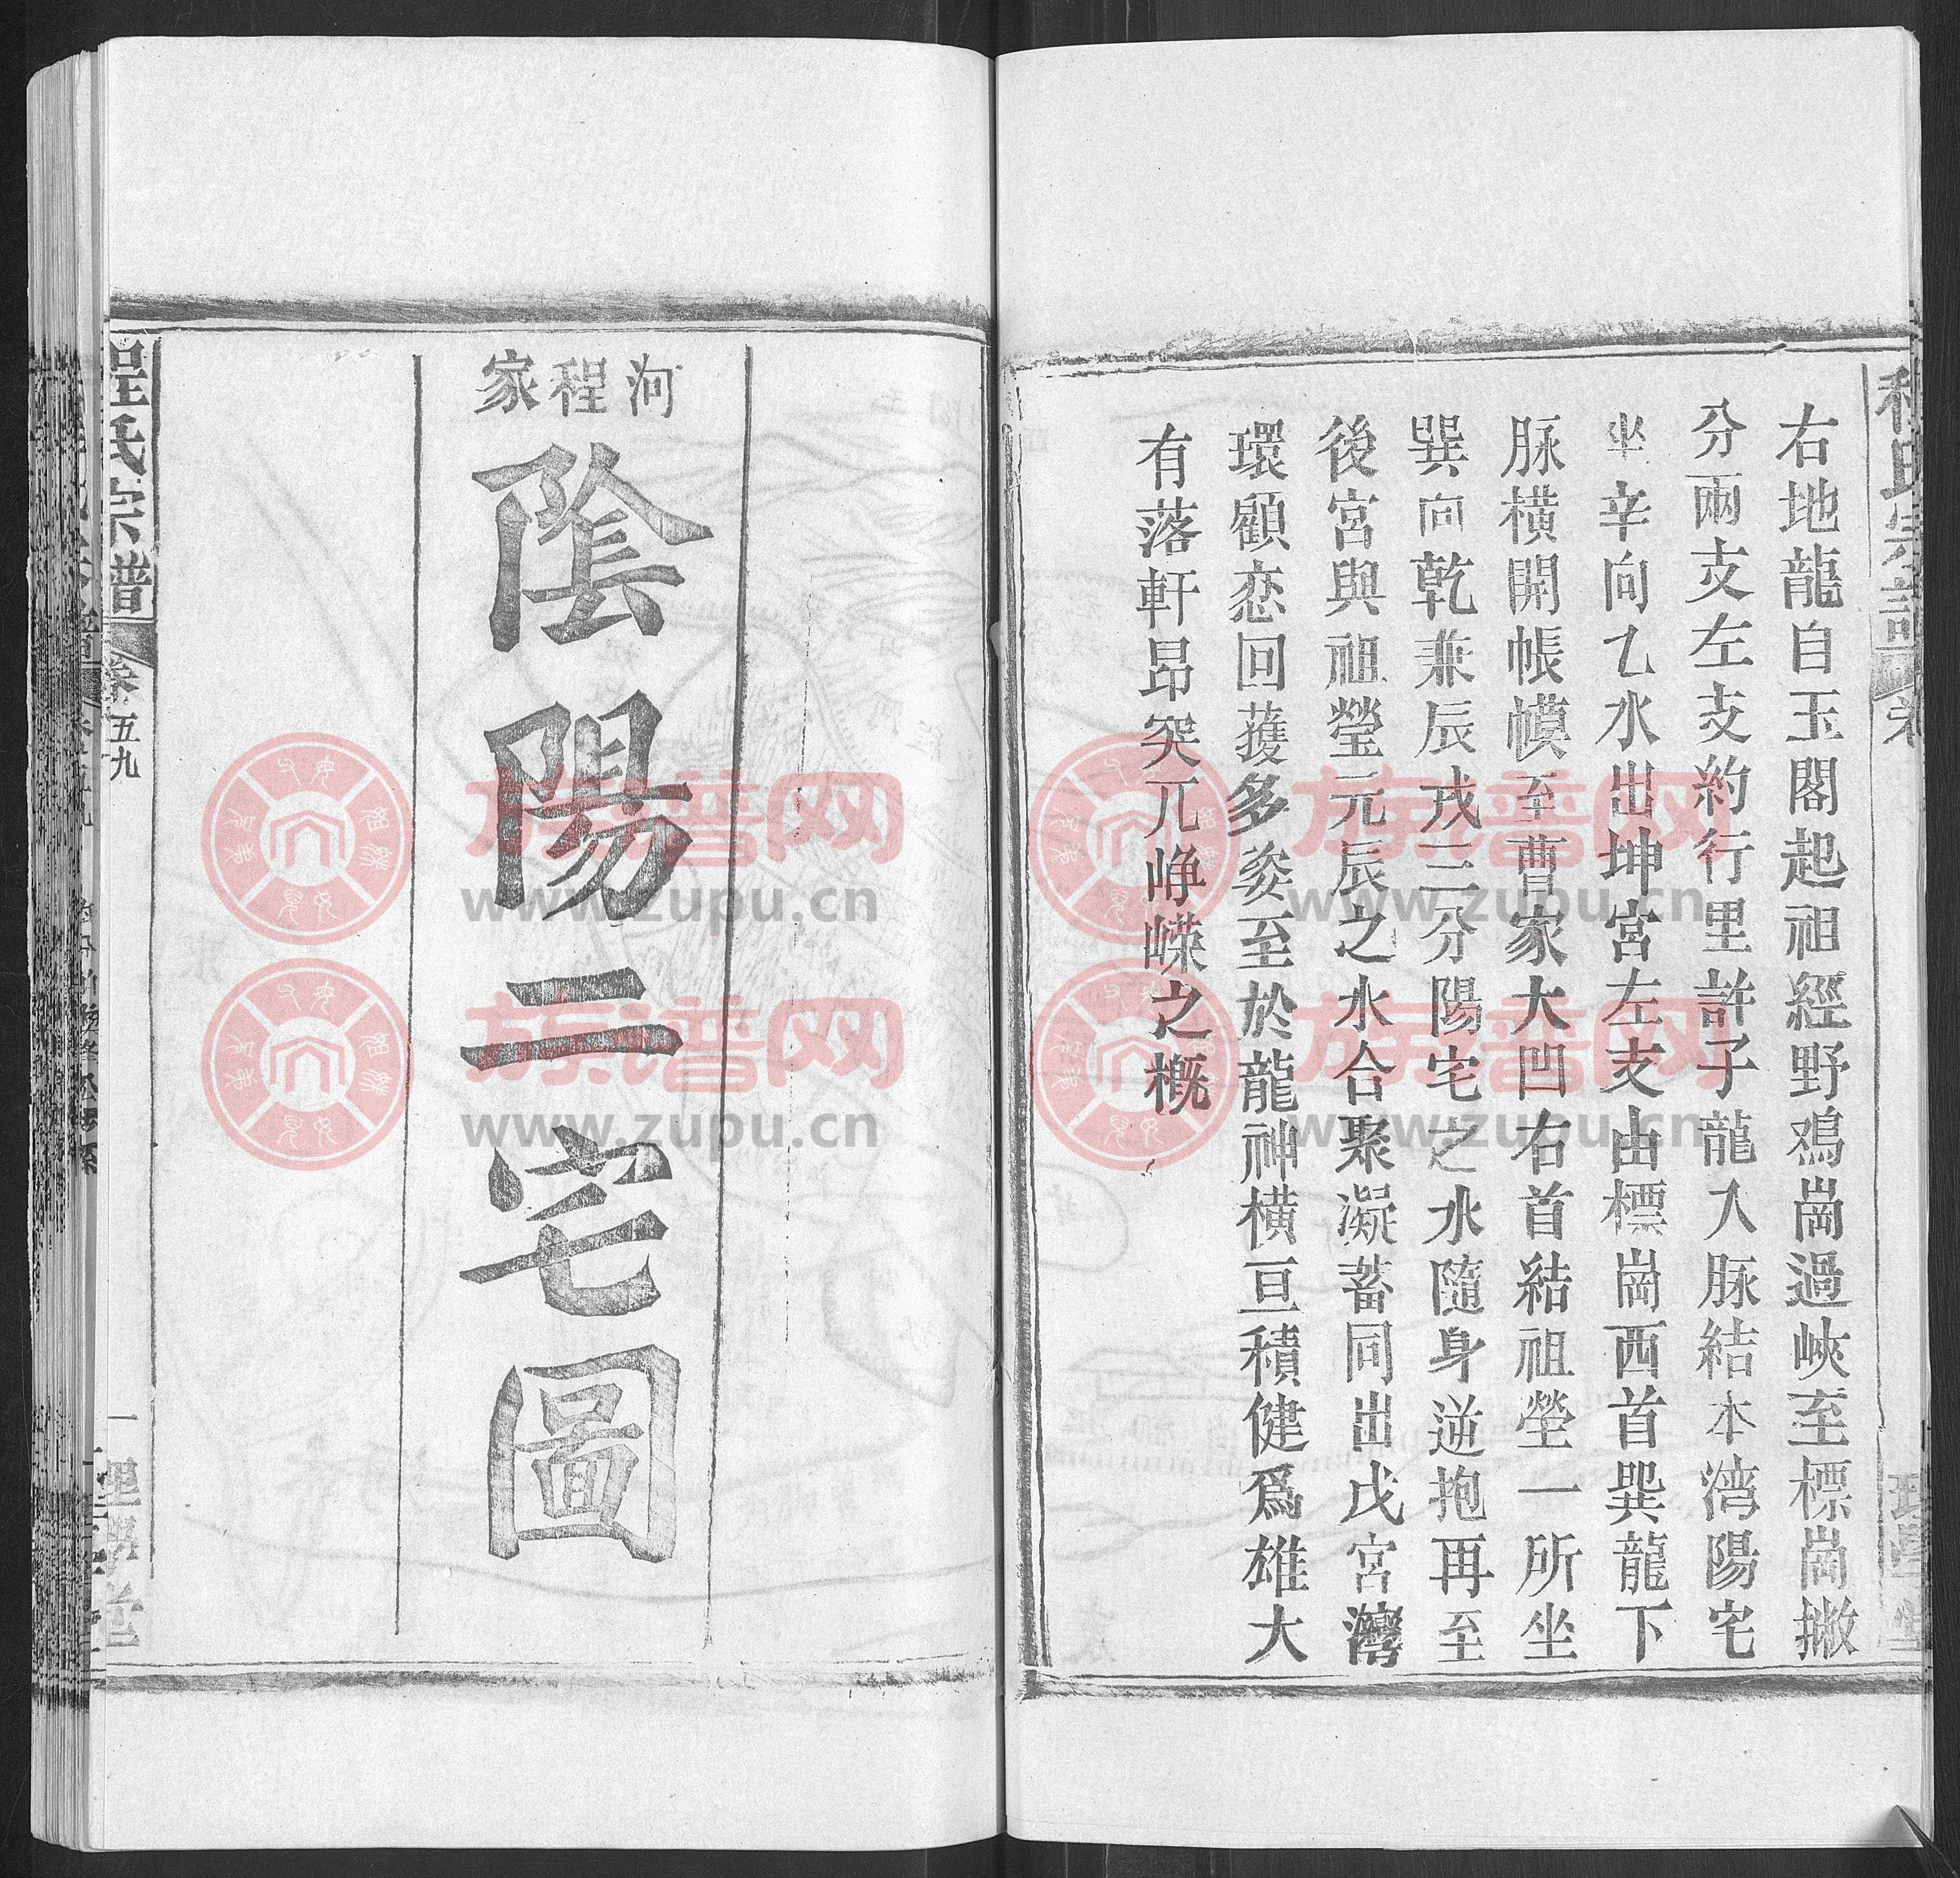 程氏宗譜
卷
理學堂
右地龍自玉閣起祖經野鳮崗過峽至標崗撇
分兩支左支約行里許子龍入脉結本湾陽宅
坐辛向乙水出坤宮左支由標崗西首巽龍下
脉橫開帳幙至曹家大凹右首結祖塋一所坐
巽向乾兼辰戍三分陽宅之水隨身逆抱再至
後宮與祖瑩元辰之水合聚凝蓄同出戊宮灣
環顧恋回蒦多姿至於龍神橫亘積健爲雄大
有落軒昂突兀崢嶸之概
河程家
陰陽二宅圖
程氏宗譜
卷五九
一理學堂
族谱网
www.zupu.cn
族谱网
www.zupu.cn
族谱网
www.zupu.cn
族谱网
www.zupu.cn